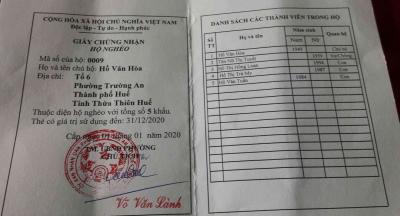 CỘNG HÒA XÃ HỘI CHỦ NGHĨA VIỆT NAM
Độc lập - Tự do - Hạnh phúc
GIẤY CHỨNG NHẬN
HỘ NGHÈO
Mã số của hộ: 0009
Họ và tên chủ hộ: Hồ Văn Hòa
Địa chỉ: Tổ 6
Phường Trường An
Thành phố Huế
Tỉnh Thừa Thiên Huế
Thuộc diện hộ nghèo với tổng số 5 khẩu.
Thẻ có giá trị sử dụng đến: 31/12/2020
Cấp ngày 01 tháng 01 năm 2020
TM. UBND PHƯỜNG
CHỦ TỊCH
Võ Văn Lành
DANH SÁCH CÁC THÀNH VIÊN TRONG HỘ
Số TT
Họ và tên
Năm sinh
Quan hệ
1 Hồ Văn Hòa 1949 Chủ hộ
2 Tôn Nữ Thị Tuyết 1959 Vợ/Chồng
3 Hồ Thị Hồng Loan Con
4 Hồ Thị Trà My 1987 Con
5 Hồ Văn Tuấn 1984 Con